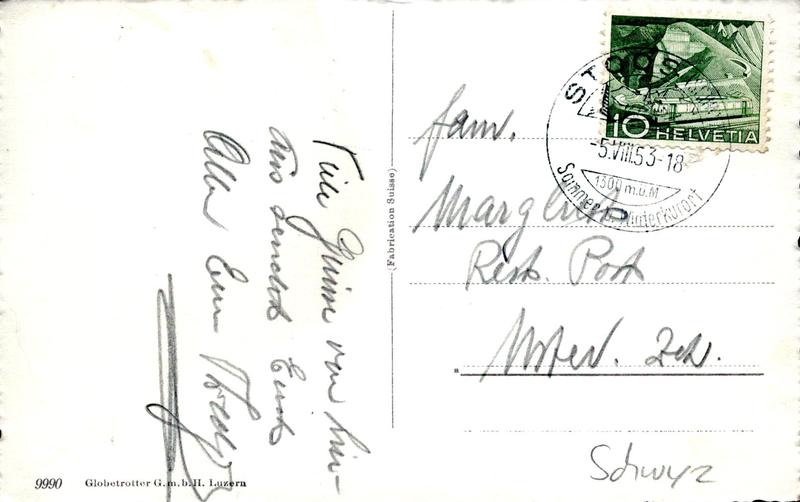 Viele Grüsse von hin-
aus sendet Euch
Alle Eure
(Fabrication Suisse)
9990 Globetrotter G.m.b.H. Luzern
STOOS
10 HELVETIA
-5.VIII.53-18
1300 m.ü.M
Sommer u. Winterkurort
Fam.
Rest. Post
Schwyz